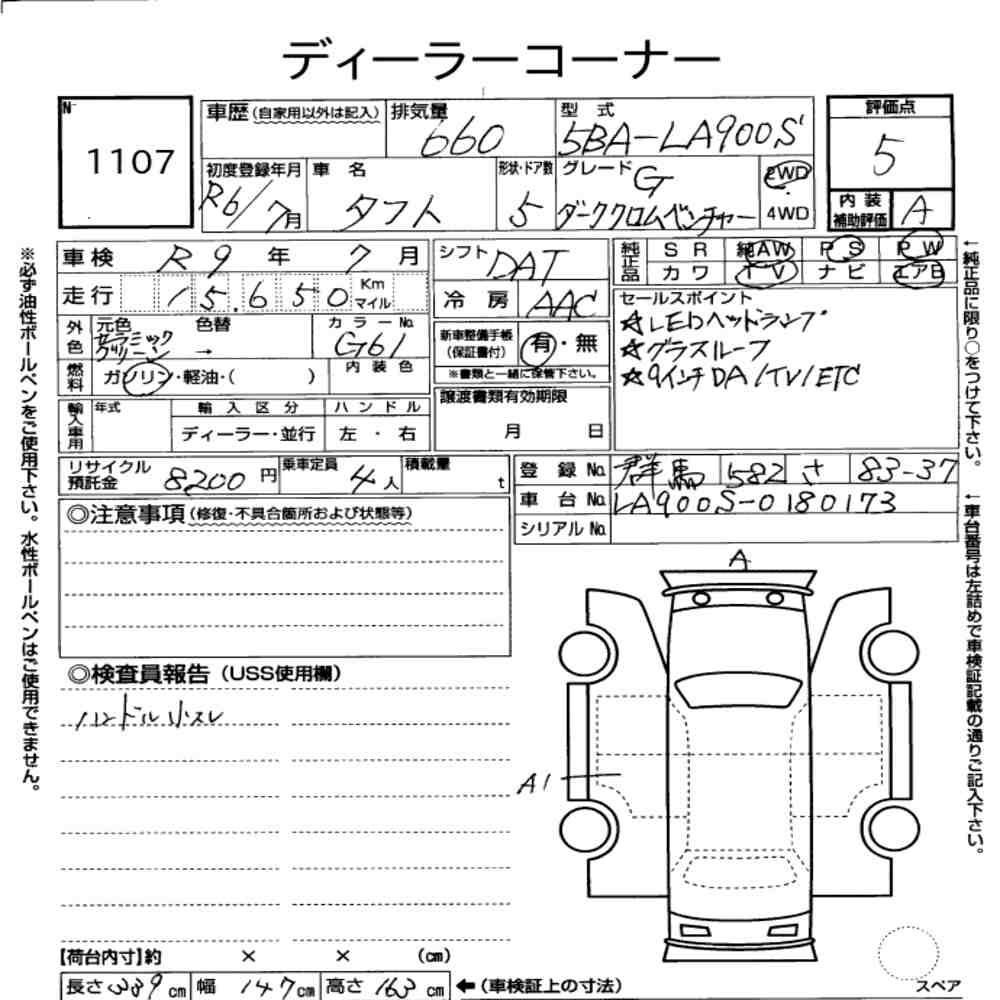 ディーラーコーナー
No.
1107
車歴(自家用以外は記入)
排気量
660
型式
5BA-LA900S
評価点
5
初度登録年月
R6/7月
車名
タフト
形状・ドア数
5
グレード
G
ダーククロムベンチャー
2WD
・
4WD
内装
補助評価
A
車検 R9年 7月
シフト DAT
純正品
SR 純AW PS PW
カワ TV ナビ エアB
走行 15.650 Km マイル
冷房 AAC
セールスポイント
☆LEDヘッドランプ
☆グラスルーフ
☆9インチDA/TV/ETC
外色
元色 色替
セラミックグリーン →
カラーNo.
G61
新車整備手帳
(保証書付)
有・無
※書類と一緒に保管下さい。
燃料
ガソリン・軽油・( )
内装色
譲渡書類有効期限
月 日
輸入車用
年式
輸入区分
ハンドル
ディーラー・並行
左・右
リサイクル預託金
8200円
乗車定員
4人
積載量
t
登録No. 群馬 582 さ 83-37
車台No. LA900S-0180173
シリアルNo.
◎注意事項(修復・不具合箇所および状態等)
◎検査員報告(USS使用欄)
ハンドル小スレ
A
A1
【荷台内寸】約 × × (cm)
長さ339cm 幅147cm 高さ163cm ←(車検証上の寸法)
スペア
※必ず油性ボールペンをご使用下さい。水性ボールペンはご使用できません。
←純正品に限り○をつけて下さい。
←車台番号は左詰めで車検証記載の通りご記入下さい。